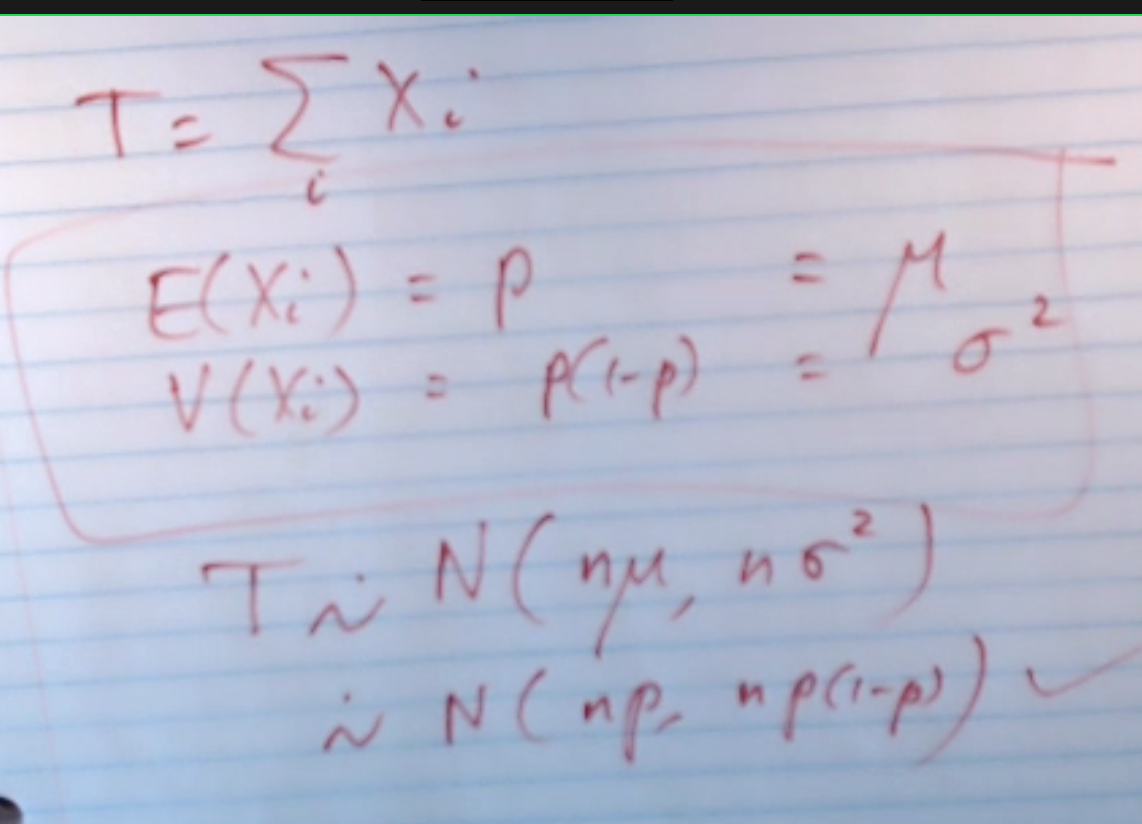 T = ∑ Xᵢ
i
E(Xᵢ) = p = μ
V(Xᵢ) = p(1-p) = σ²
T ∼̇ N(nμ, nσ²)
∼̇ N(np, np(1-p)) ✓